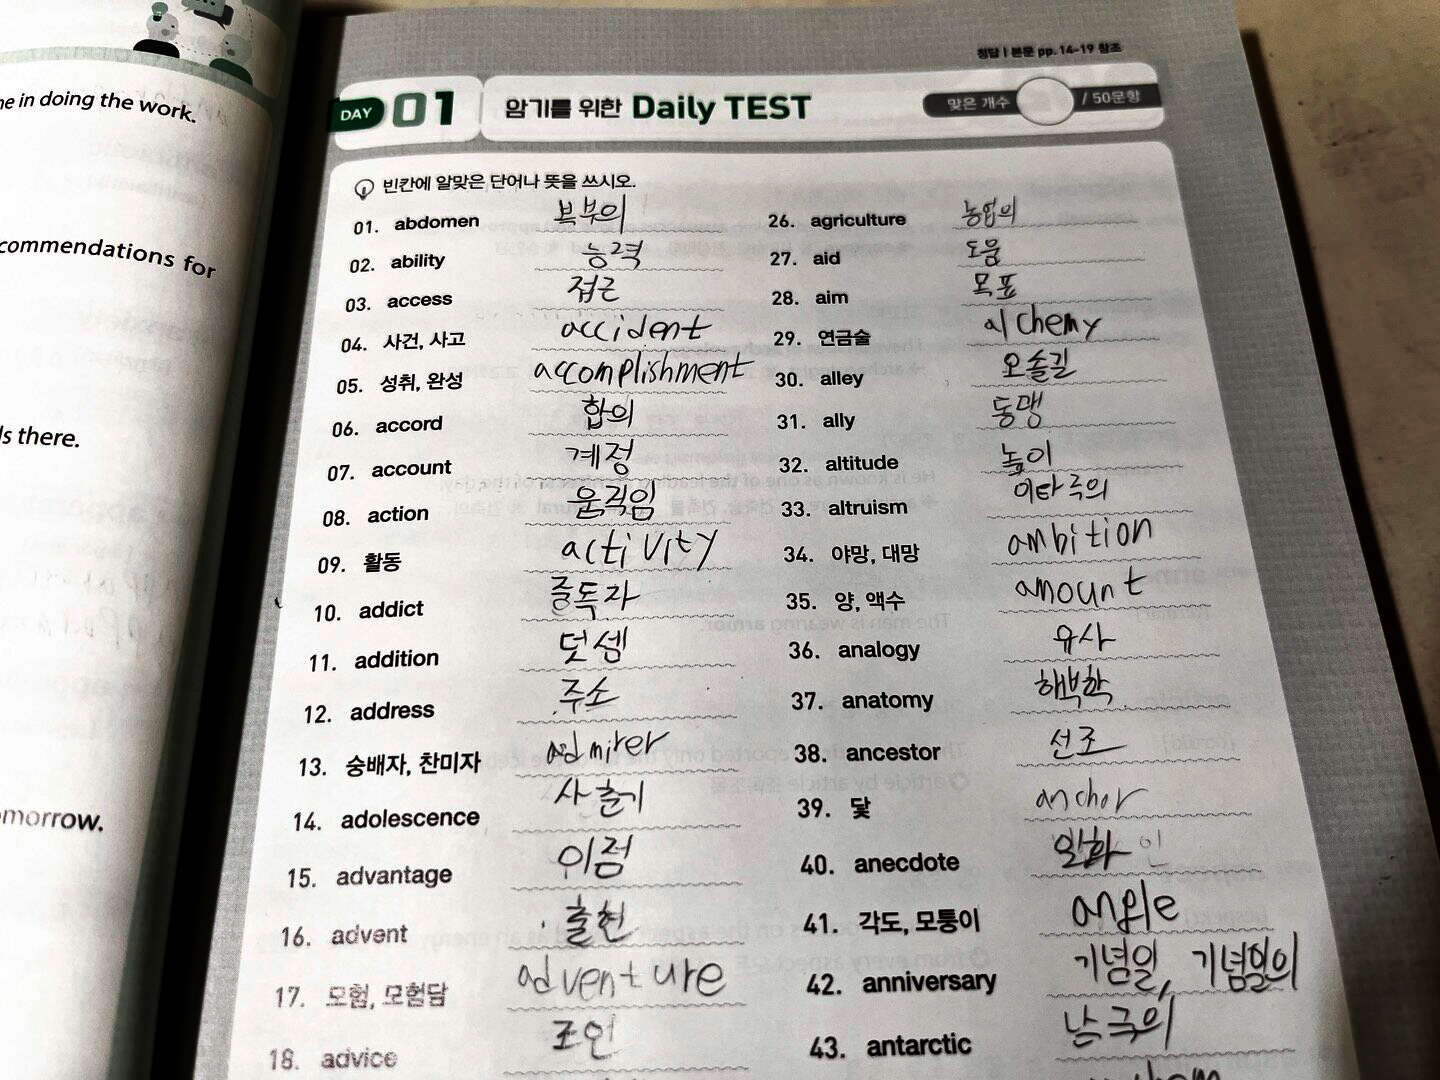 me in doing the work.
commendations for
ls there.
omorrow.
정답 | 본문 pp. 14-19 참조
DAY 01 암기를 위한 Daily TEST
맞은 개수 / 50문항
빈칸에 알맞은 단어나 뜻을 쓰시오.
01. abdomen 복부의
02. ability 능력
03. access 접근
04. 사건, 사고 accident
05. 성취, 완성 accomplishment
06. accord 합의
07. account 계정
08. action 움직임
09. 활동 activity
10. addict 중독자
11. addition 덧셈
12. address 주소
13. 숭배자, 찬미자 admirer
14. adolescence 사춘기
15. advantage 이점
16. advent 출현
17. 모험, 모험담 adventure
18. advice 조언
26. agriculture 농업의
27. aid 도움
28. aim 목표
29. 연금술 alchemy
30. alley 오솔길
31. ally 동맹
32. altitude 높이
33. altruism 이타주의
34. 야망, 대망 ambition
35. 양, 액수 amount
36. analogy 유사
37. anatomy 해부학
38. ancestor 선조
39. 닻 anchor
40. anecdote 일화
41. 각도, 모퉁이 angle
42. anniversary 기념일, 기념일의
43. antarctic 남극의